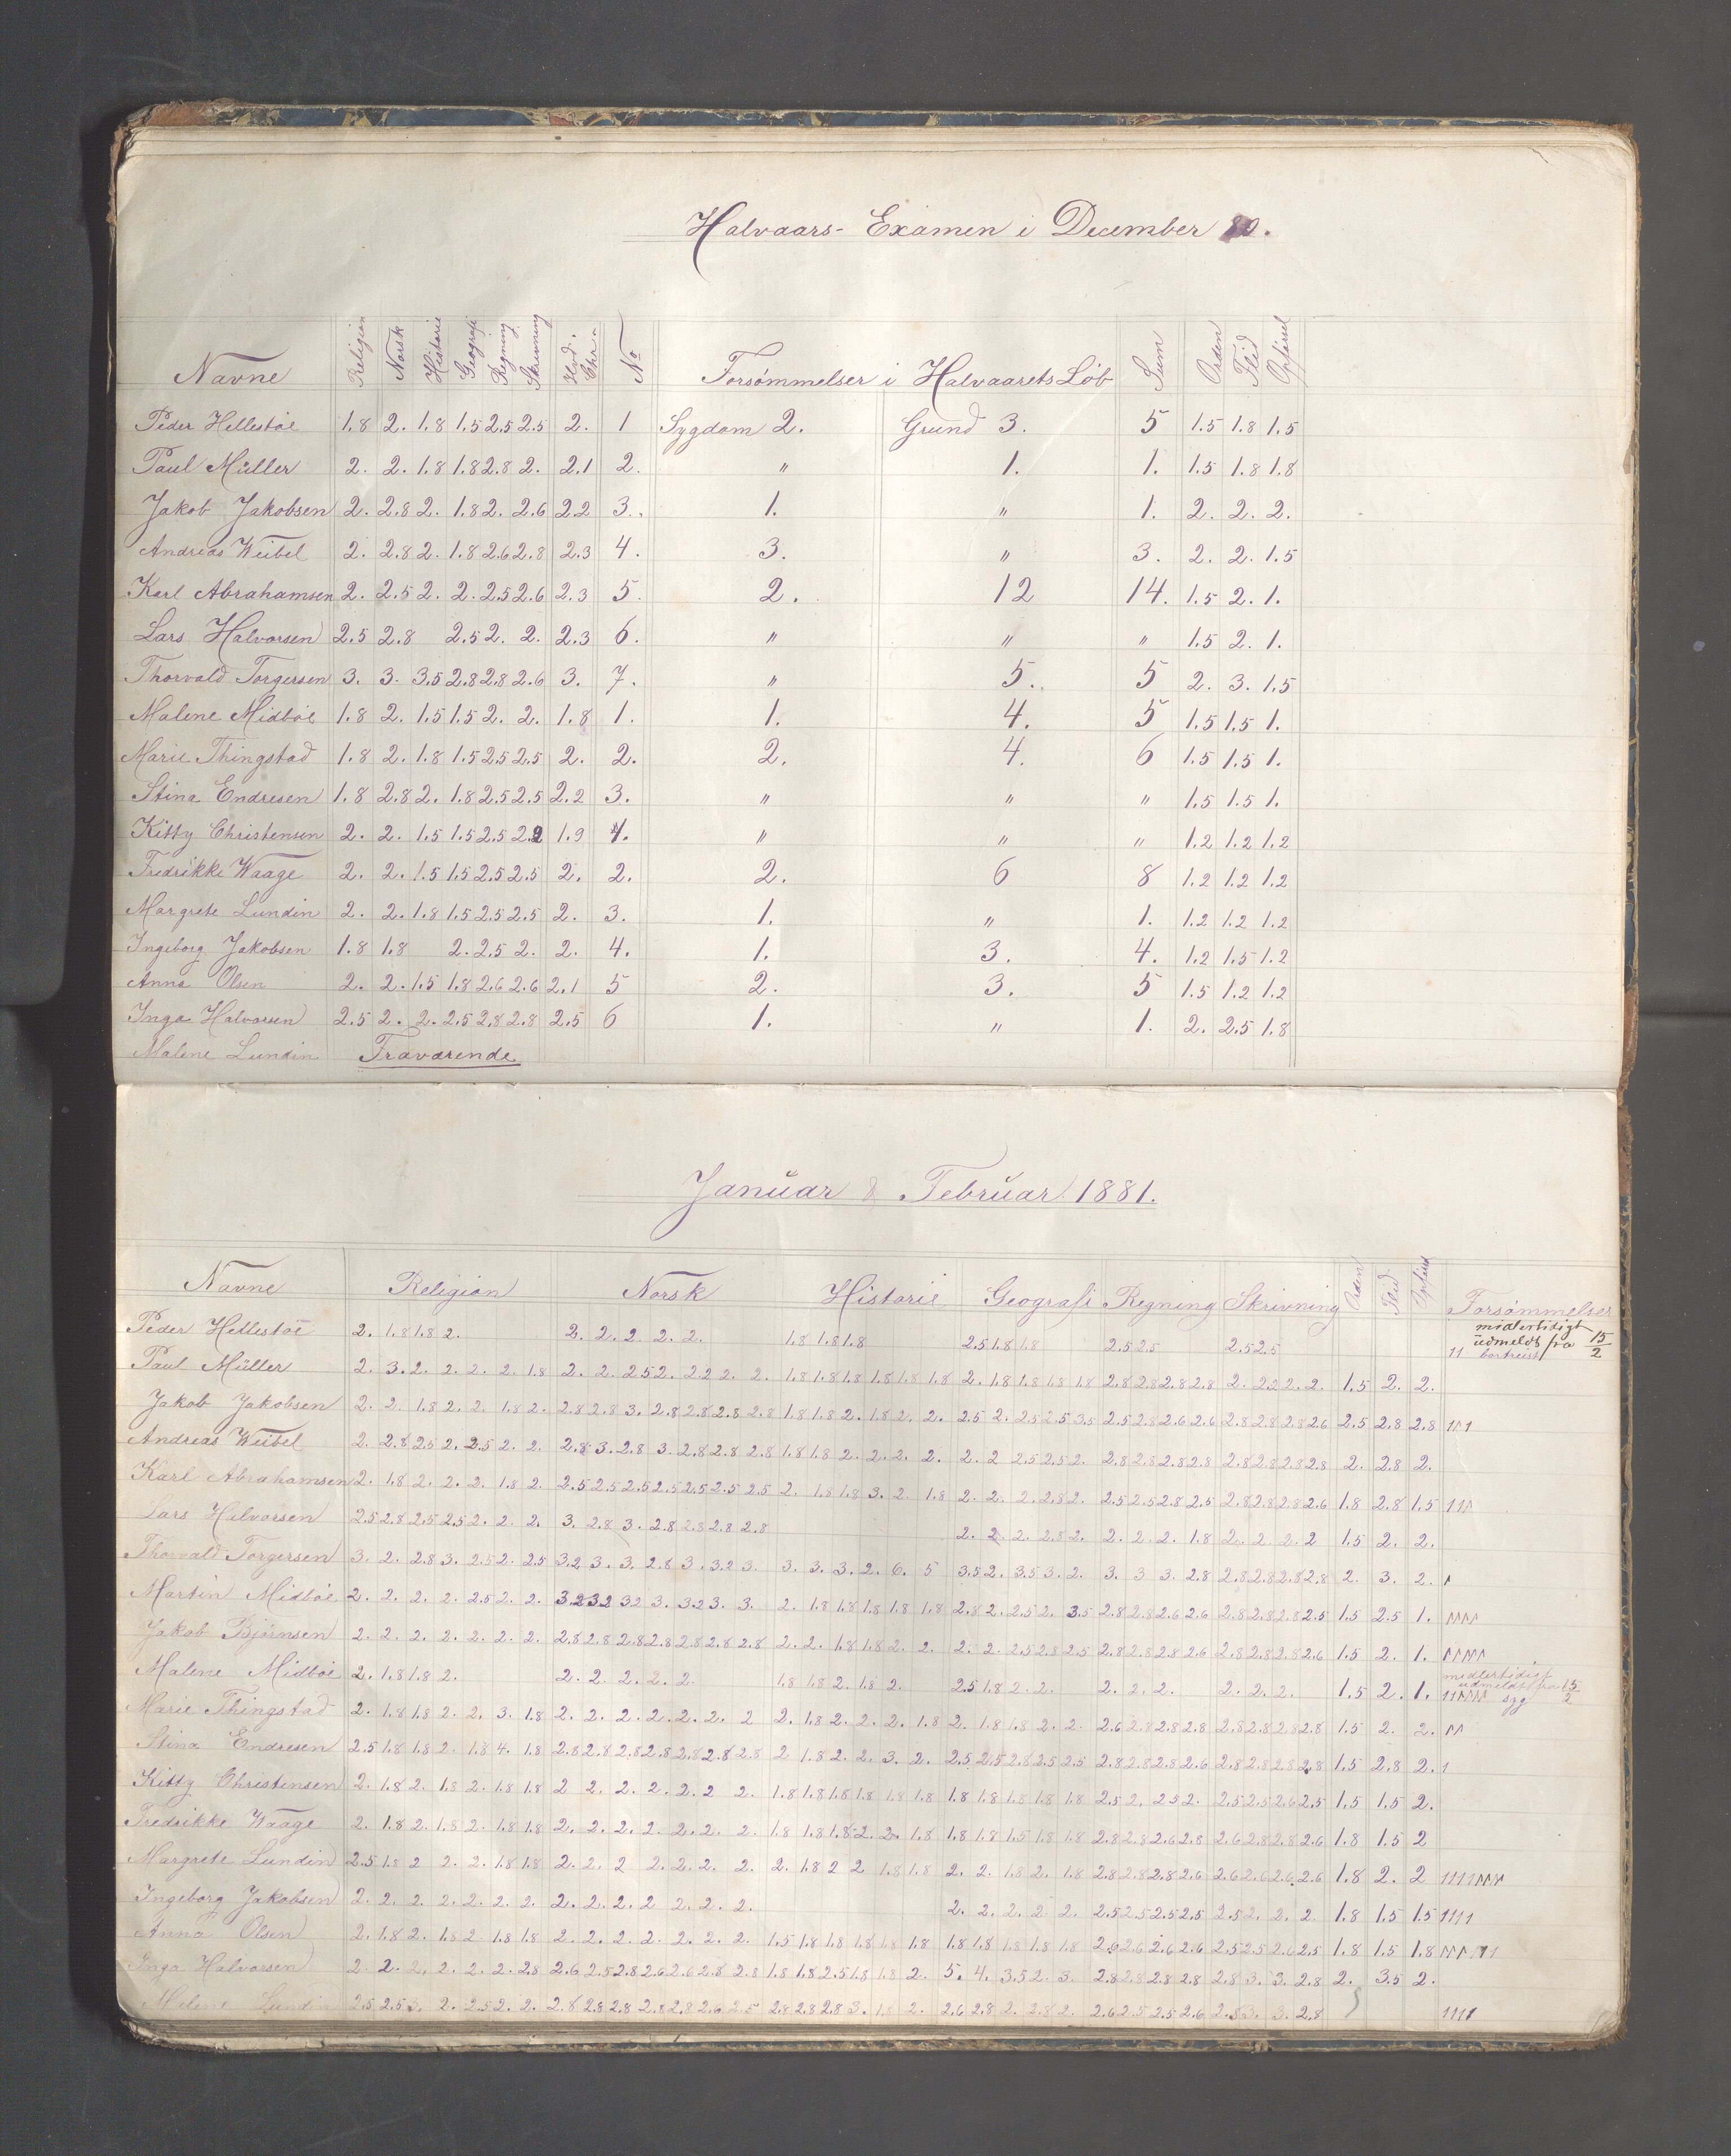 Halvaars-Examen i December 80.
Navne Religion Norsk Historie Geografi Regning Skrivning Hvd. Chr. No Forsömmelser i Halvaarets Löb Sum Orden Flid Opførsel
Peder Hellestöe 1.8 2. 1.8 1.5 2.5 2.5 2. 1 Sygdom 2. Grund 3. 5 1.5 1.8 1.5
Paul Müller 2. 2. 1.8 1.8 2.8 2. 2.1 2. " 1. 1. 1.5 1.8 1.8
Jakob Jakobsen 2. 2.8 2. 1.8 2. 2.6 2.2 3. 1. " 1. 2. 2. 2.
Andreas Weibel 2. 2.8 2. 1.8 2.6 2.8 2.3 4. 3. " 3. 2. 2. 1.5
Karl Abrahamsen 2. 2.5 2. 2. 2.5 2.6 2.3 5. 2. 12 14. 1.5 2. 1.
Lars Halvorsen 2.5 2.8 2.5 2. 2. 2.3 6. " " " 1.5 2. 1.
Thorvald Torgersen 3. 3. 3.5 2.8 2.8 2.6 3. 7. " 5. 5 2. 3. 1.5
Malene Midböe 1.8 2. 1.5 1.5 2. 2. 1.8 1. 1. 4. 5 1.5 1.5 1.
Marie Thingstad 1.8 2. 1.8 1.5 2.5 2.5 2. 2. 2. 4. 6 1.5 1.5 1.
Stina Endresen 1.8 2.8 2. 1.8 2.5 2.5 2.2 3. " " " 1.5 1.5 1.
Kitty Christensen 2. 2. 1.5 1.5 2.5 2.2 1.9 1. " " " 1.2 1.2 1.2
Fredrikke Waage 2. 2. 1.5 1.5 2.5 2.5 2. 2. 2. 6 8 1.2 1.2 1.2
Margrete Lundin 2. 2. 1.8 1.5 2.5 2.5 2. 3. 1. " 1. 1.2 1.2 1.2
Ingeborg Jakobsen 1.8 1.8 2. 2.5 2. 2. 4. 1. 3. 4. 1.2 1.5 1.2
Anna Olsen 2. 2. 1.5 1.8 2.6 2.6 2.1 5 2. 3. 5 1.5 1.2 1.2
Inga Halvorsen 2.5 2. 2. 2.5 2.8 2.8 2.5 6 1. " 1. 2. 2.5 1.8
Malene Lundin Fraværende
Januar & Februar 1881.
Navne Religion Norsk Historie Geografi Regning Skrivning Orden Flid Opførsel Forsömmelser
Peder Hellestöe 2. 1.8 1.8 2. 2. 2. 2. 2. 2. 1.8 1.8 1.8 2.5 1.8 1.8 2.5 2.5 2.5 2.5 11 midlertidigt udmeldt fra 15/2 bortreist
Paul Müller 2. 3. 2. 2. 2. 2. 1.8 2. 2. 2.5 2. 2.2 2. 2. 1.8 1.8 1.8 1.8 1.8 1.8 2. 1.8 1.8 1.8 1.8 2.8 2.8 2.8 2.8 2. 2.2 2. 2. 1.5 2. 2.
Jakob Jakobsen 2. 2. 1.8 2. 2. 1.8 2. 2.8 2.8 3. 2.8 2.8 2.8 2.8 1.8 1.8 2. 1.8 2. 2. 2.5 2. 2.5 2.5 3.5 2.5 2.8 2.6 2.6 2.8 2.8 2.8 2.6 2.5 2.8 2.8
Andreas Weibel 2. 2.8 2.5 2. 2.5 2. 2. 2.8 3. 2.8 3. 2.8 2.8 2.8 1.8 1.8 2. 2. 2. 2. 2. 2 2.5 2.5 2. 2.8 2.8 2.8 2.8 2.8 2.8 2.8 2.8 2. 2.8 2.
Karl Abrahamsen 2. 1.8 2. 2. 2. 1.8 2. 2.5 2.5 2.5 2.5 2.5 2.5 2.5 2. 1.8 1.8 3. 2. 1.8 2. 2. 2. 2.8 2. 2.5 2.5 2.8 2.5 2.8 2.8 2.8 2.6 1.8 2.8 1.5
Lars Halvorsen 2.5 2.8 2.5 2.5 2. 2. 2. 3. 2.8 3. 2.8 2.8 2.8 2.8 2. 2. 2. 2.8 2. 2. 2. 2. 1.8 2. 2. 2. 2 1.5 2. 2.
Thorvald Torgersen 3. 2. 2.8 3. 2.5 2. 2.5 3.2 3. 3. 2.8 3. 3.2 3. 3. 3. 3. 2. 6. 5 3.5 2. 3.5 3. 2. 3. 3 3. 2.8 2.8 2.8 2.8 2.8 2. 3. 2.
Martin Midböe 2. 2. 2. 2. 2.5 2. 2. 3.2 3.2 3.2 3. 3.2 3. 3. 2. 1.8 1.8 1.8 1.8 1.8 2.8 2. 2.5 2. 3.5 2.8 2.8 2.6 2.6 2.8 2.8 2.8 2.5 1.5 2.5 1.
Jakob Bjørnsen 2. 2. 2. 2. 2. 2. 2. 2.8 2.8 2.8 2.8 2.8 2.8 2.8 2. 2. 1.8 1.8 2. 2. 2. 2. 2.5 2.8 2.5 2.8 2.8 2.8 2.6 2.8 2.8 2.8 2.6 1.5 2. 1.
Malene Midböe 2. 1.8 1.8 2. 2. 2. 2. 2. 2. 1.8 1.8 2. 1.8 2. 2.5 1.8 2. 2. 2. 2. 2. 2. 2. 2. 1.5 2. 1. midlertidigt udmeldt fra 15/2 syg
Marie Thingstad 2. 1.8 1.8 2. 2. 3. 1.8 2. 2. 2. 2. 2. 2. 2 2. 1.8 2. 2. 2. 1.8 2. 1.8 1.8 2. 2. 2.6 2.8 2.8 2.8 2.8 2.8 2.8 2.8 1.5 2. 2.
Stina Endresen 2.5 1.8 1.8 2. 1.8 4. 1.8 2.8 2.8 2.8 2.8 2.8 2.8 2.8 2 1.8 2. 2. 3. 2. 2.5 2.5 2.8 2.5 2.5 2.8 2.8 2.8 2.6 2.8 2.8 2.8 2.8 1.5 2.8 2. 1
Kitty Christensen 2. 1.8 2. 1.8 2. 1.8 1.8 2 2. 2. 2. 2. 2 2. 1.8 1.8 1.8 1.8 1.8 1.8 1.8 1.8 1.8 1.8 1.8 2.5 2. 2.5 2. 2.5 2.5 2.6 2.5 1.5 1.5 2.
Fredrikke Waage 2. 1.8 2. 1.8 2. 1.8 1.8 2. 2. 2. 2. 2. 2. 2. 1.8 1.8 1.8 2. 2. 1.8 1.8 1.8 1.5 1.8 1.8 2.8 2.8 2.6 2.8 2.6 2.8 2.8 2.6 1.8 1.5 2
Margrete Lundin 2.5 1.8 2 2. 2. 1.8 1.8 2. 2. 2 2. 2. 2. 2. 2. 1.8 2 2 1.8 1.8 2. 2. 1.8 2. 1.8 2.8 2.8 2.8 2.6 2.6 2.6 2.6 2.6 1.8 2. 2
Ingeborg Jakobsen 2. 2. 2. 2. 2. 2. 2. 2. 2. 2. 2 2. 2. 2. 2. 2. 2. 2 2. 2.5 2.5 2.5 2.5 2.5 2. 2. 2. 1.8 1.5 1.5 1111
Anna Olsen 2. 1.8 2. 1.8 2 1.8 1.8 2. 2. 2. 2. 2. 2. 2. 1.5 1.8 1.8 1.8 1.8 1.8 1.8 1.8 1.8 1.8 1.8 2.6 2.6 2.6 2.6 2.5 2.5 2.6 2.5 1.8 1.5 1.8
Inga Halvorsen 2. 2. 2. 2. 2. 2. 2.8 2.6 2.5 2.8 2.6 2.6 2.8 2.8 1.8 1.8 2.5 1.8 1.8 2. 5. 4. 3.5 2. 3. 2.8 2.8 2.8 2.8 2.8 3. 3. 2.8 2. 3.5 2.
Malene Lundin 2.5 2.5 3. 2. 2.5 2. 2. 2.8 2.8 2.8 2.8 2.8 2.6 2.5 2.8 2.8 2.8 3. 1.8 2. 2.6 2.8 2. 2.8 2. 2.6 2.5 2.5 2.6 2.8 3. 3. 2.8 1111